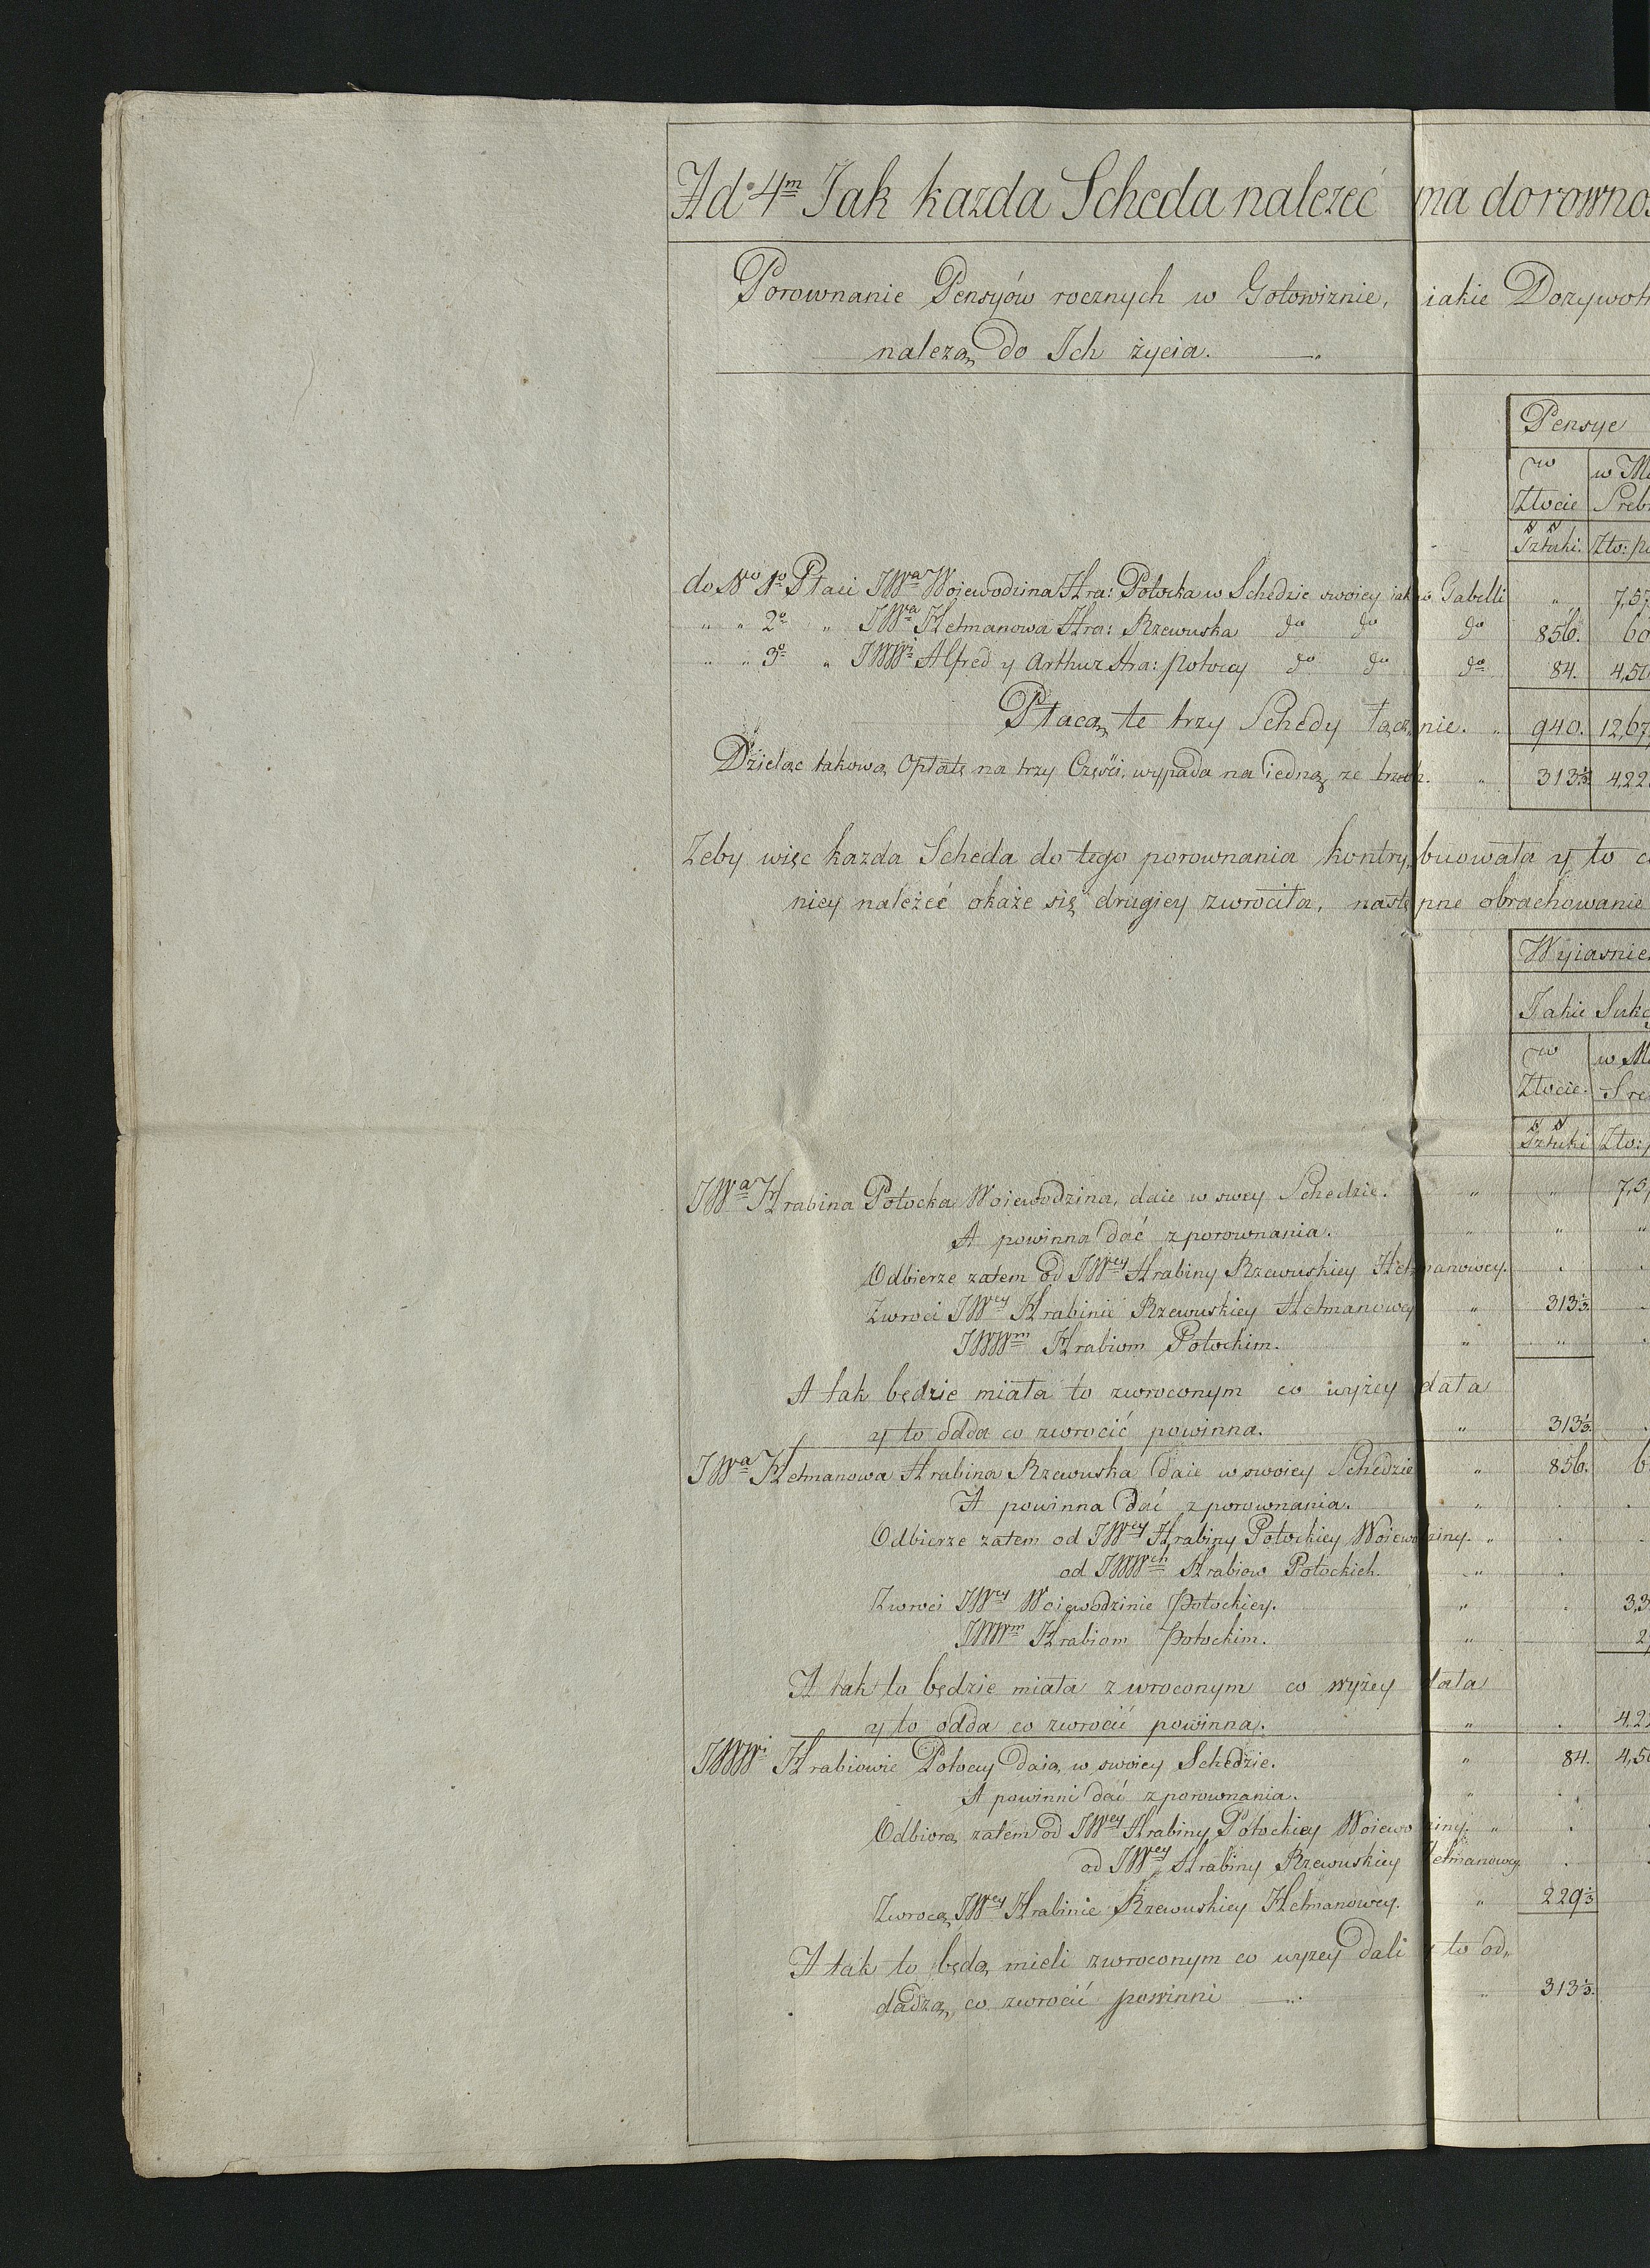 Ad 4m Jak kazda Scheda nalezeć ma dorowno
Porownanie Pensyów rocznych w Gotowiznie, iakie Dozywot
nalezą do Ich życia.
Pensye
w Złocie w M
Sreb
Sztuki. Zło: p
do No 1o Płaci JWa Wojewodzina Hra: Potocka w Schedzie swoiey iako Tabelli " 7,57
" " 2o " JWa Hetmanowa Hra: Rzewuska do do do 856. 60
" " 3o " JWWi Alfred y Arthur Hra: Potoccy do do do 84. 4,50
Płacą te trzy Schedy łącznie. " 940. 12,67
Dzieląc takową Opłatę na trzy Części, wypada na iedną ze trzech. " 313⅓ 4,22
Zeby więc kazda Scheda do tego porownania kontrybuowała y to c
niey należeć okaże się drugiey zwrociła, następne obrachowanie
Wyiasnie
Jakie Sukc
w Złocie. w M
Sre
Sztuki Zło:
JWa Hrabina Potocka Woiewodzina, daie w swey Schedzie. " " 7,5
A powinna dać z porownania. " " "
Odbierze zatem od JWey Hrabiny Rzewuskiey Hetmanowey. . .
Zwroci JWey Hrabinie Rzewuskiey Hetmanowey " 313⅓. .
JWWm Hrabiom Potockim. " " .
A tak będzie miała to zwroconym co wyżey dała
y to odda co zwrocić powinna. " 313⅓. .
JWa Hetmanowa Hrabina Rzewuska daie w swoiey Schedzie " 856. 6
A powinna dać z porownania. " . .
Odbierze zatem od JWey Hrabiny Potockiey Woiewodziny. " . .
od JWWch Hrabiow Potockich. " .
Zwroci JWey Woiewodzinie Potockiey. " . 3,3
JWWm Hrabiom Potockim. " 2,
A tak to będzie miała zwroconym co wyżey dała
y to odda co zwrocić powinna. " . 4,2
JWWi Hrabiowie Potoccy daią w swoiey Schedzie. " 84. 4,5
A powinni dać z porownania. " .
Odbiorą zatem od JWey Hrabiny Potockiey Woiewodziny. " .
od JWey Hrabiny Rzewuskiey Hetmanowey. .
Zwrocą JWey Hrabinie Rzewuskiey Hetmanowey. " 229⅓
A tak to będą mieli zwroconym co wyzey dali y to od,
dadzą, co zwrocić powinni " 313⅓.